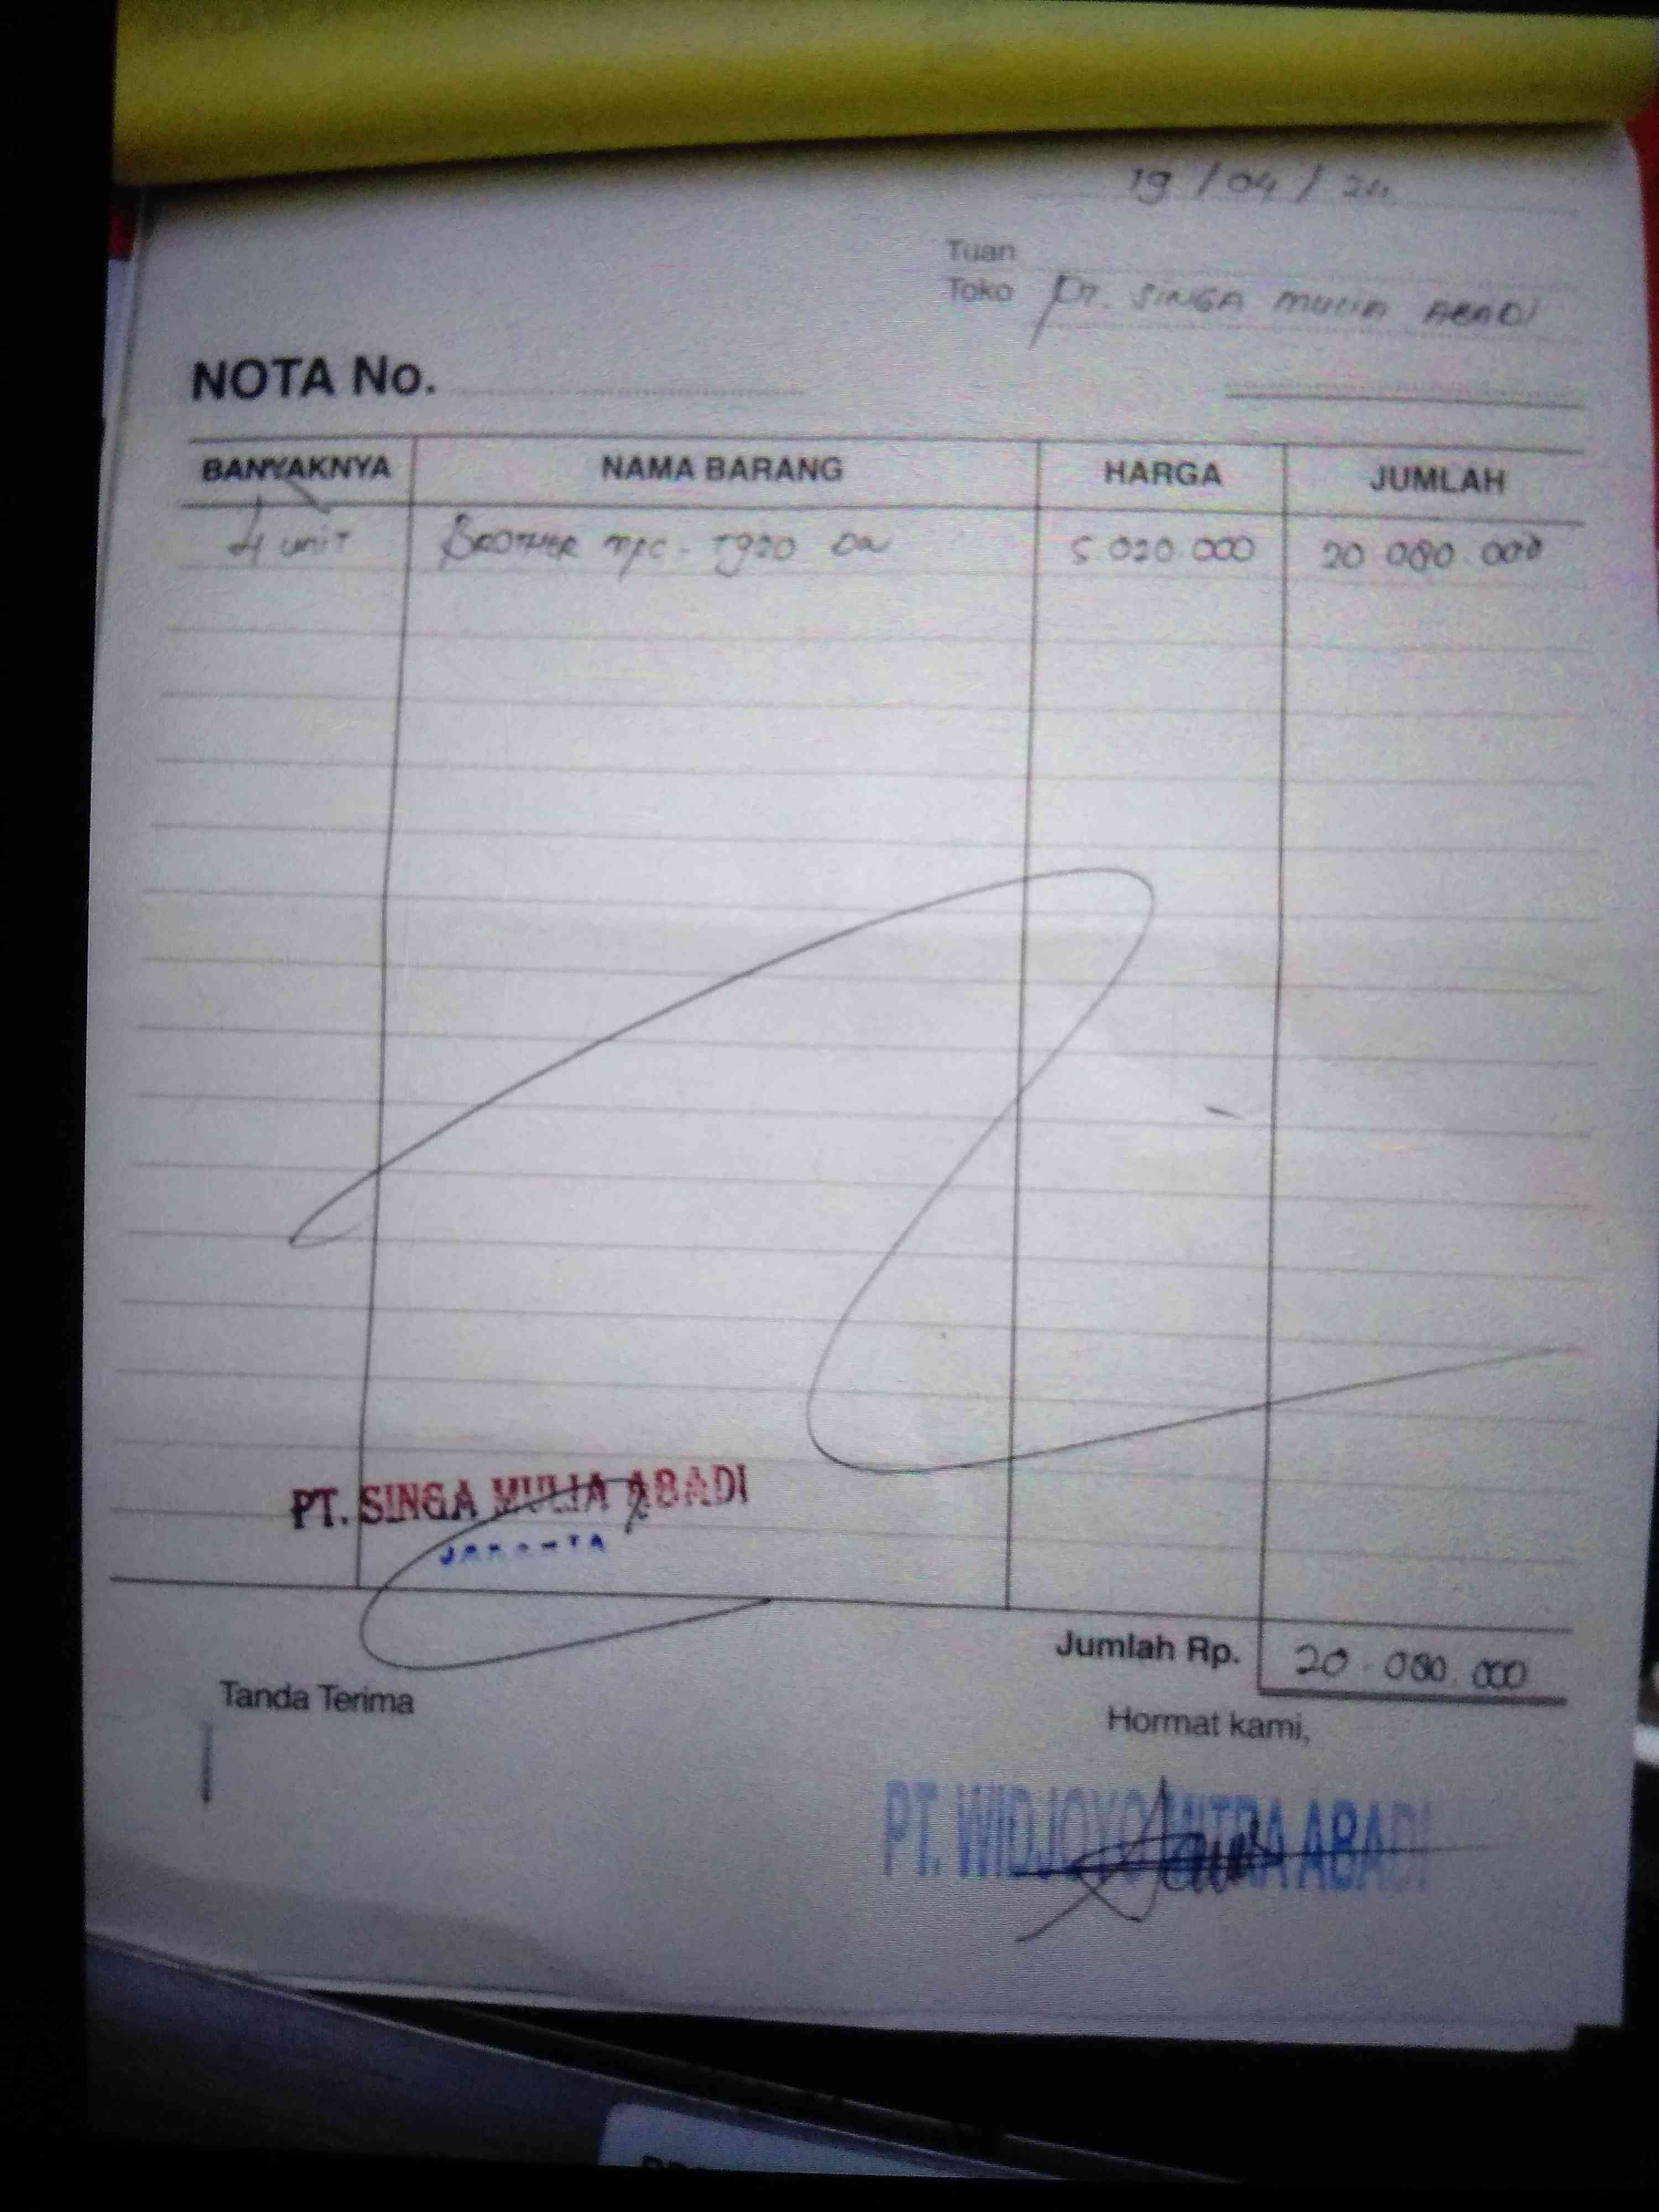 19 / 04 / 24
Tuan
Toko PT. SINGA MULIA ABADI
NOTA No.
BANYAKNYA NAMA BARANG HARGA JUMLAH
4 unit BROTHER MFC - T920 DW 5 020 000 20 080 000
PT. SINGA MULIA ABADI
JAKARTA
Jumlah Rp. 20.080.000
Tanda Terima
Hormat kami,
PT. WIDJOYO MITRA ABADI